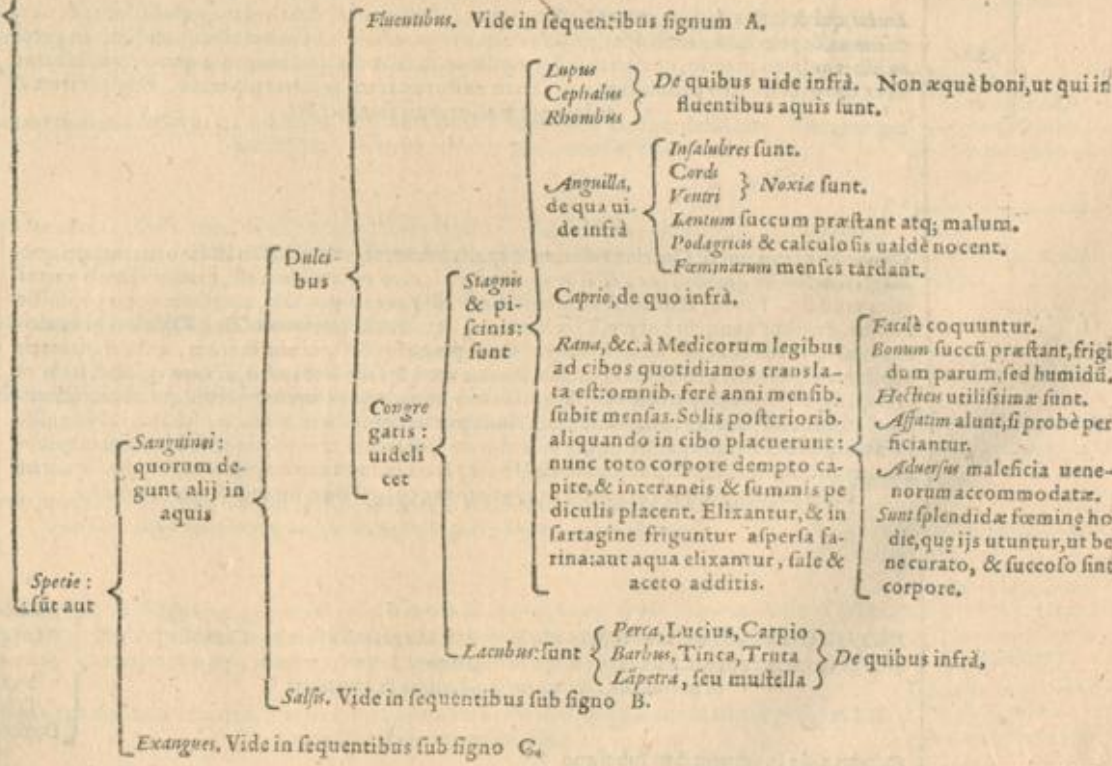 Fluentibus. Vide in ſequentibus ſignum A.
Lupus
Cephalus
Rhombus
De quibus uide infrà. Non æquè boni, ut qui in
fluentibus aquis ſunt.
Anguilla,
de qua ui-
de infrà
Inſalubres ſunt.
Cordi
Ventri
Noxiæ ſunt.
Lentum ſuccum præſtant atq; malum.
Podagricis & calculoſis ualdè nocent.
Fœminarum menſes tardant.
Dulci
bus
Stagnis
& pi-
ſcinis:
ſunt
Caprio, de quo infrà.
Rana, &c. à Medicorum legibus
ad cibos quotidianos transla-
ta eſt: omnib. ferè anni menſib.
ſubit menſas. Solis poſteriorib.
aliquando in cibo placuerunt:
nunc toto corpore dempto ca-
pite, & interaneis & ſummis pe
diculis placent. Elixantur, & in
ſartagine friguntur aſperſa fa-
rina: aut aqua elixantur, ſale &
aceto additis.
Facilè coquuntur.
Bonum ſuccũ præſtant, frigi
dum parum, ſed humidũ.
Hecticis utiliſsimæ ſunt.
Affatim alunt, ſi probè per
ficiantur.
Aduerſus maleficia uene-
norum accommodatæ.
Sunt ſplendidæ fœminę ho
die, quę ijs utuntur, ut be
ne curato, & ſuccoſo ſint
corpore.
Congre
gatis:
uideli
cet
Sanguinei:
quorum de-
gunt alij in
aquis
Specie:
ſũt aut
Lacubus: ſunt
Perca, Lucius, Carpio
Barbus, Tinca, Truta
Lãpetra, ſeu muſtella
De quibus infrà.
Salſis. Vide in ſequentibus ſub ſigno B.
Exangues. Vide in ſequentibus ſub ſigno C.